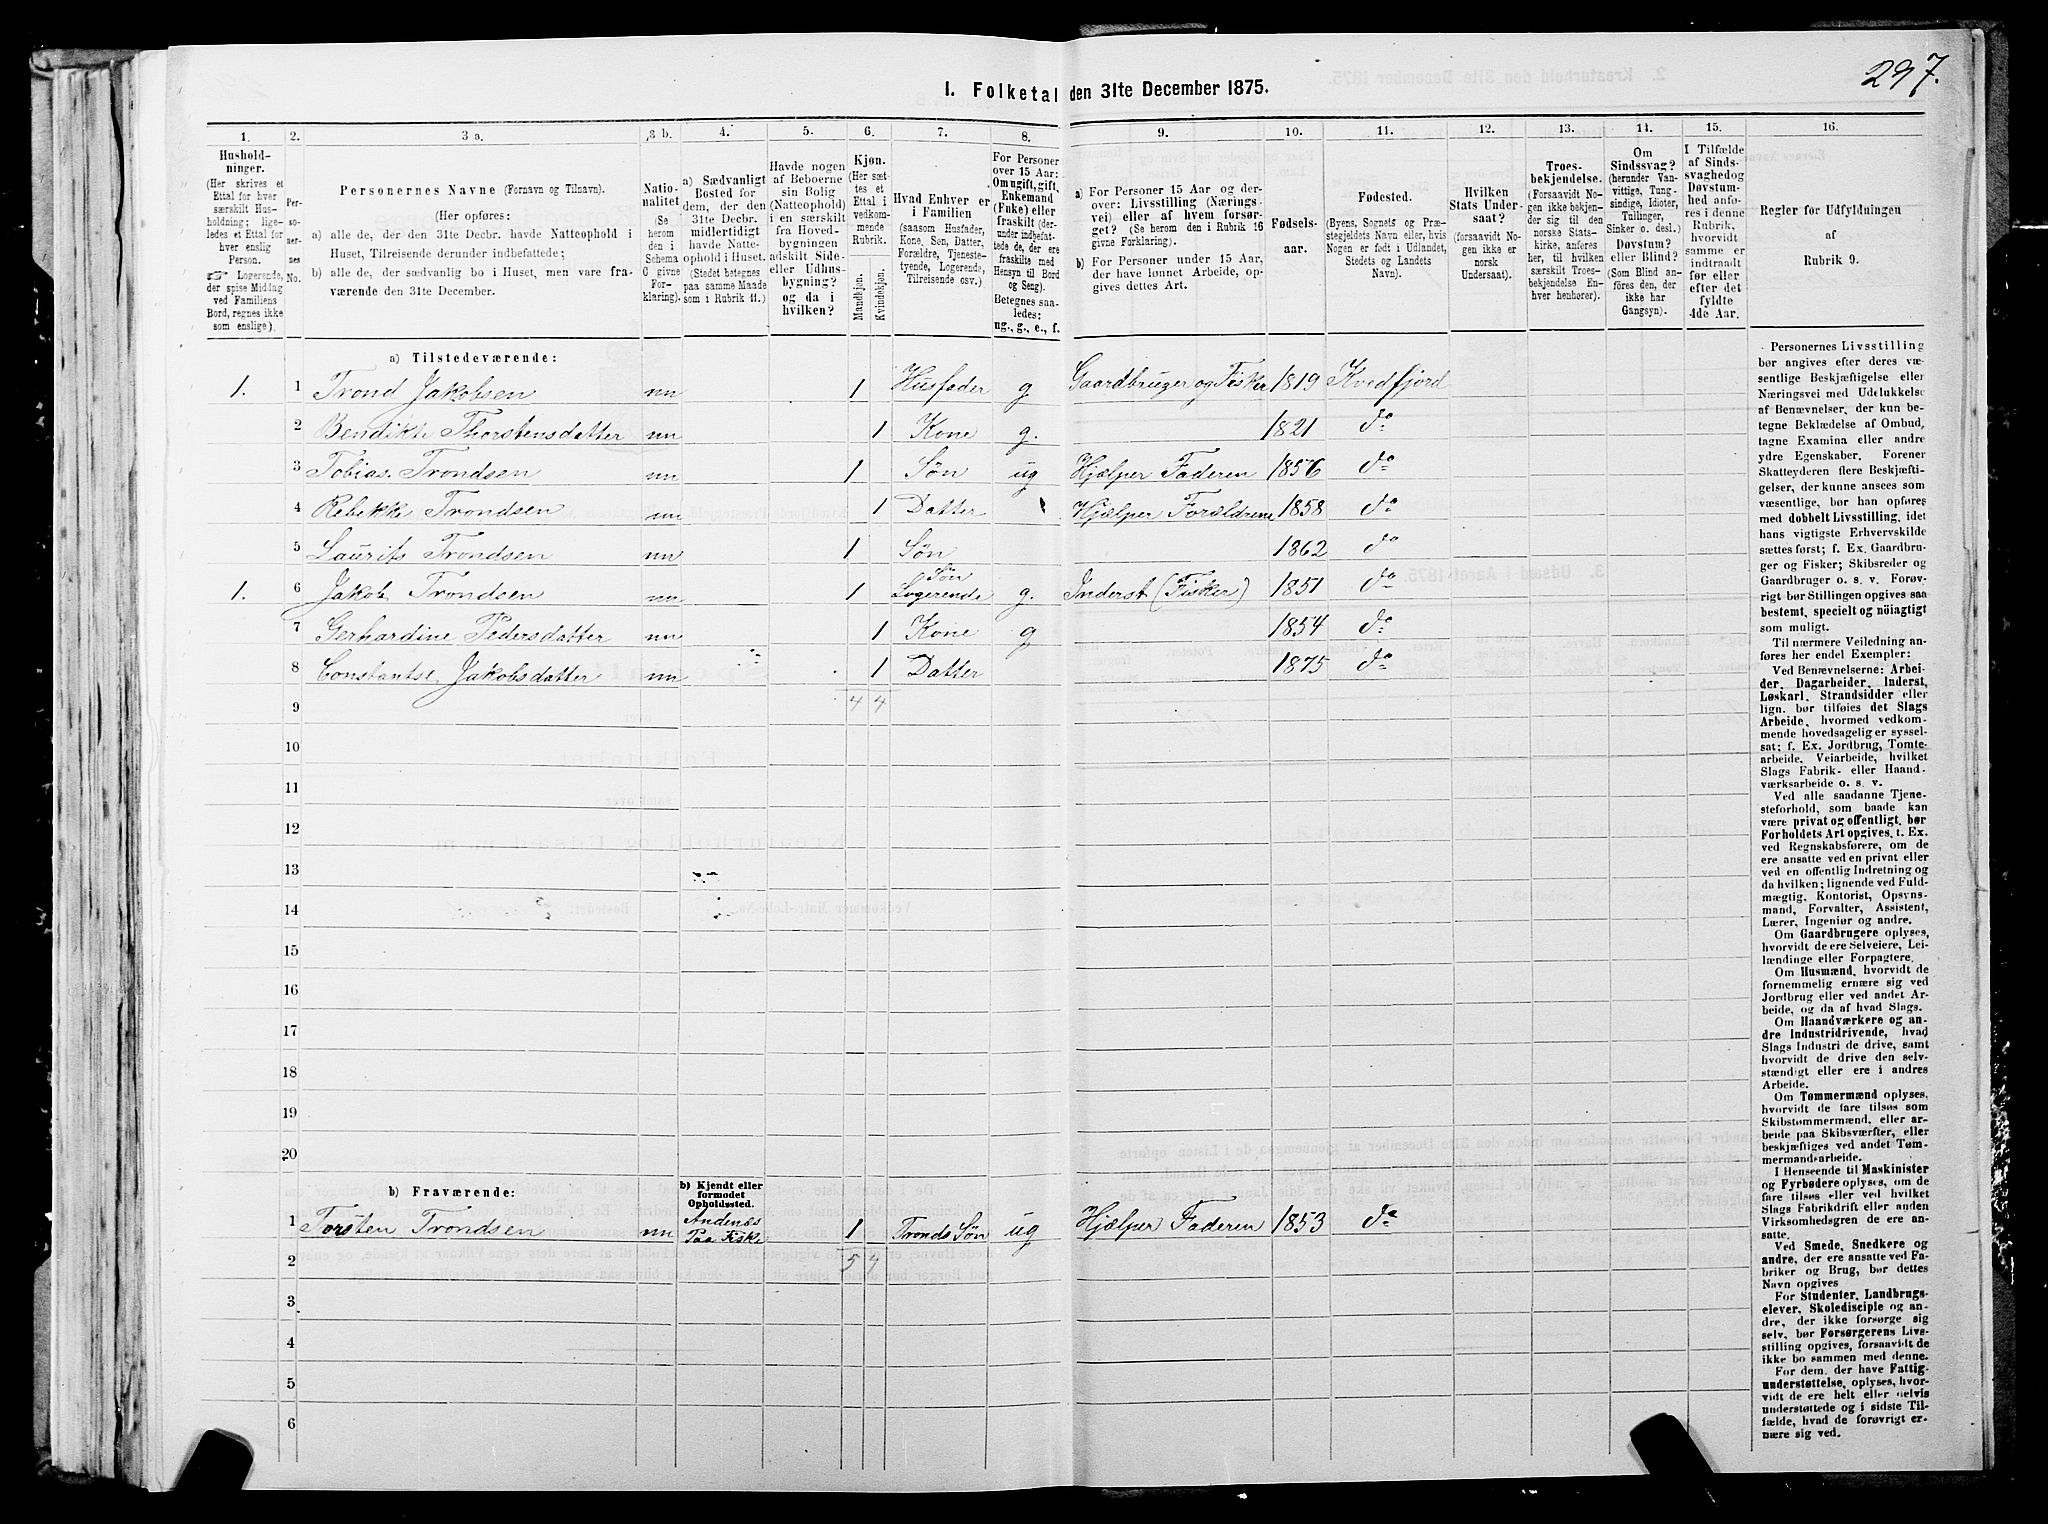 297.
I. Folketal den 31te December 1875.
1. 2. 3 a. 3 b. 4. 5. 6. 7. 8. 9. 10. 11. 12. 13. 14. 15. 16.
Hushold-
ninger.
(Her skrives et
Ettal for hver
særskilt Hus-
holdning; lige-
ledes et Ettal for
hver enslig
Person.
☞ Logerende,
der spise Middag
ved Familiens
Bord, regnes ikke
som enslige).
Per-
so-
ner-
nes
No.
Personernes Navne (Fornavn og Tilnavn).
(Her opføres:
a) alle de, der den 31te Decbr. havde Natteophold i
Huset, Tilreisende derunder indbefattede;
b) alle de, der sædvanlig bo i Huset, men vare fra-
værende den 31te December.
Natio-
nalitet
(Se
herom
den i
Schema
C givne
For-
klaring).
a) Sædvanligt
Bosted for
dem, der den
31te Decbr.
midlertidigt
havde Natte-
ophold i Huset.
(Stedet betegnes
paa samme Maade
som i Rubrik 11.)
Havde nogen
af Beboerne
sin Bolig
(Natteophold)
i en særskilt
fra Hoved-
bygningen
adskilt Side-
eller Udhus-
bygning?
og da i
hvilken?
Kjøn.
(Her sæt-
tes et
Ettal i
vedkom-
mende
Rubrik.
Mandkjøn.
Kvindekjøn.
Hvad Enhver er
i Familien
(saasom Husfader,
Kone, Søn, Datter,
Forældre, Tjeneste-
tyende, Logerende,
Tilreisende osv.)
For Personer
over 15 Aar:
Om ugift, gift,
Enkemand
(Enke) eller
fraskilt (der-
under indbefat-
tede de, der ere
fraskilte med
Hensyn til Bord
og Seng).
Betegnes saa-
ledes:
ug., g., e., f.
a) For Personer 15 Aar og der-
over: Livsstilling (Nærings-
vei) eller af hvem forsør-
get? (Se herom den i Rubrik 16
givne Forklaring).
b) For Personer under 15 Aar,
der have lønnet Arbeide, op-
gives dettes Art.
Fødsels-
aar.
Fødested.
(Byens, Sognets og Præ-
stegjeldets Navn eller, hvis
Nogen er født i Udlandet,
Stedets og Landets
Navn).
Hvilken
Stats Under-
saat?
(forsaavidt No-
gen ikke er
norsk
Undersaat).
Troes-
bekjendelse.
(Forsaavidt No-
gen ikke bekjen-
der sig til den
norske Stats-
kirke, anføres
her, til hvilken
særskilt Troes-
bekjendelse En-
hver henhører).
Om
Sindssvag?
(herunder Van-
vittige, Tung-
sindige, Idioter,
Tullinger,
Sinker o. desl.)
Døvstum?
eller Blind?
(Som Blind an-
føres den, der
ikke har
Gangsyn).
I Tilfælde
af Sinds-
svaghed og
Døvstum-
hed anfø-
res i denne
Rubrik,
hvorvidt
samme er
indtraadt
før eller
efter det
fyldte
4de Aar.
Regler for Udfyldningen
af
Rubrik 9.
a) Tilstedeværende:
1. 1 Trond Jakobsen nn 1 Husfader g Gaardbruger og Fisker 1819 Kvedfjord
2 Bendikte Thorstensdatter nn 1 Kone g. 1821 do
3 Tobias Trondsen nn 1 Søn ug Hjælper Faderen 1856 do
4 Rebekke Trondsen nn 1 Datter Hjælper Forældrene 1858 do
5 Laurits Trondsen nn 1 Søn 1862 do
1. 6 Jakob Trondsen nn 1 Søn Logerende g. Inderst (Fisker) 1851 do
7 Gerhardine Pedersdatter nn 1 Kone g 1854 do
8 Constantse Jakobsdatter nn 1 Datter 1875 do
9 4 4
10
11
12
13
14
15
16
17
18
19
20
b) Fraværende:
b) Kjendt eller
formodet
Opholdssted.
1 Torsten Trondsen nn Andenæs Paa Fiske 1 Tronds Søn ug Hjælper Faderen 1853 do
2 5 4
3
4
5
6
Personernes Livsstilling
bør angives efter deres væ-
sentlige Beskjæftigelse eller
Næringsvei med Udelukkelse
af Benævnelser, der kun be-
tegne Beklædelse af Ombud,
tagne Examina eller andre
ydre Egenskaber. Forener
Skatteyderen flere Beskjæfti-
gelser, der kunne ansees som
væsentlige, bør han opføres
med dobbelt Livsstilling, idet
hans vigtigste Erhvervskilde
sættes først; f. Ex. Gaardbru-
ger og Fisker; Skibsreder og
Gaardbruger o. s. v. Forøv-
rigt bør Stillingen opgives saa
bestemt, specielt og nöiagtigt
som muligt.
Til nærmere Veiledning an-
føres her endel Exempler:
Ved Benævnelserne: Arbei-
der, Dagarbeider, Inderst,
Løskarl, Strandsidder eller
lign. bør tilføies det Slags
Arbeide, hvormed vedkom-
mende hovedsagelig er syssel-
sat; f. Ex. Jordbrug, Tomte-
arbeide, Veiarbeide, hvilket
Slags Fabrik- eller Haand-
værksarbeide o. s. v.
Ved alle saadanne Tjene-
steforhold, som baade kan
være privat og offentligt, bør
Forholdets Art opgives, t. Ex.
ved Regnskabsførere, om de
ere ansatte ved en privat eller
ved en offentlig Indretning og
da hvilken; lignende ved Fuld-
mægtig, Kontorist, Opsyns-
mand, Forvalter, Assistent,
Lærer, Ingeniør og andre.
Om Gaardbrugere oplyses,
hvorvidt de ere Selveiere, Lei-
lændinge eller Forpagtere.
Om Husmænd, hvorvidt de
fornemmelig ernære sig ved
Jordbrug eller ved andet Ar-
beide, og da af hvad Slags.
Om Haandværkere og an-
dre Industridrivende, hvad
Slags Industri de drive, samt
hvorvidt de drive den selv-
stændigt eller ere i andres
Arbeide.
Om Tømmermænd oplyses,
hvorvidt de fare tilsøs som
Skibstømmermænd, eller ar-
beide paa Skibsværfter, eller
beskjæftiges ved andet Tøm-
mermandsarbeide.
I Henseende til Maskinister
og Fyrbødere oplyses, om de
fare tilsøs eller ved hvilket
Slags Fabrikdrift eller anden
Virksomhedsgren de ere an-
satte.
Ved Smede, Snedkere og
andre, der ere ansatte ved Fa-
briker og Brug, bør dettes
Navn opgives
For Studenter, Landbrugs-
elever, Skoledisciple og an-
dre, der ikke forsørge sig
selv, bør Forsørgerens Livs-
stilling opgives, forsaavidt de
ikke bo sammen med denne.
For dem, der have Fattig-
understøttelse, oplyses, hvor-
vidt de ere helt eller delvis
understøttede og i sidste Til-
fælde, hvad de forøvrigt er-
nære sig ved.